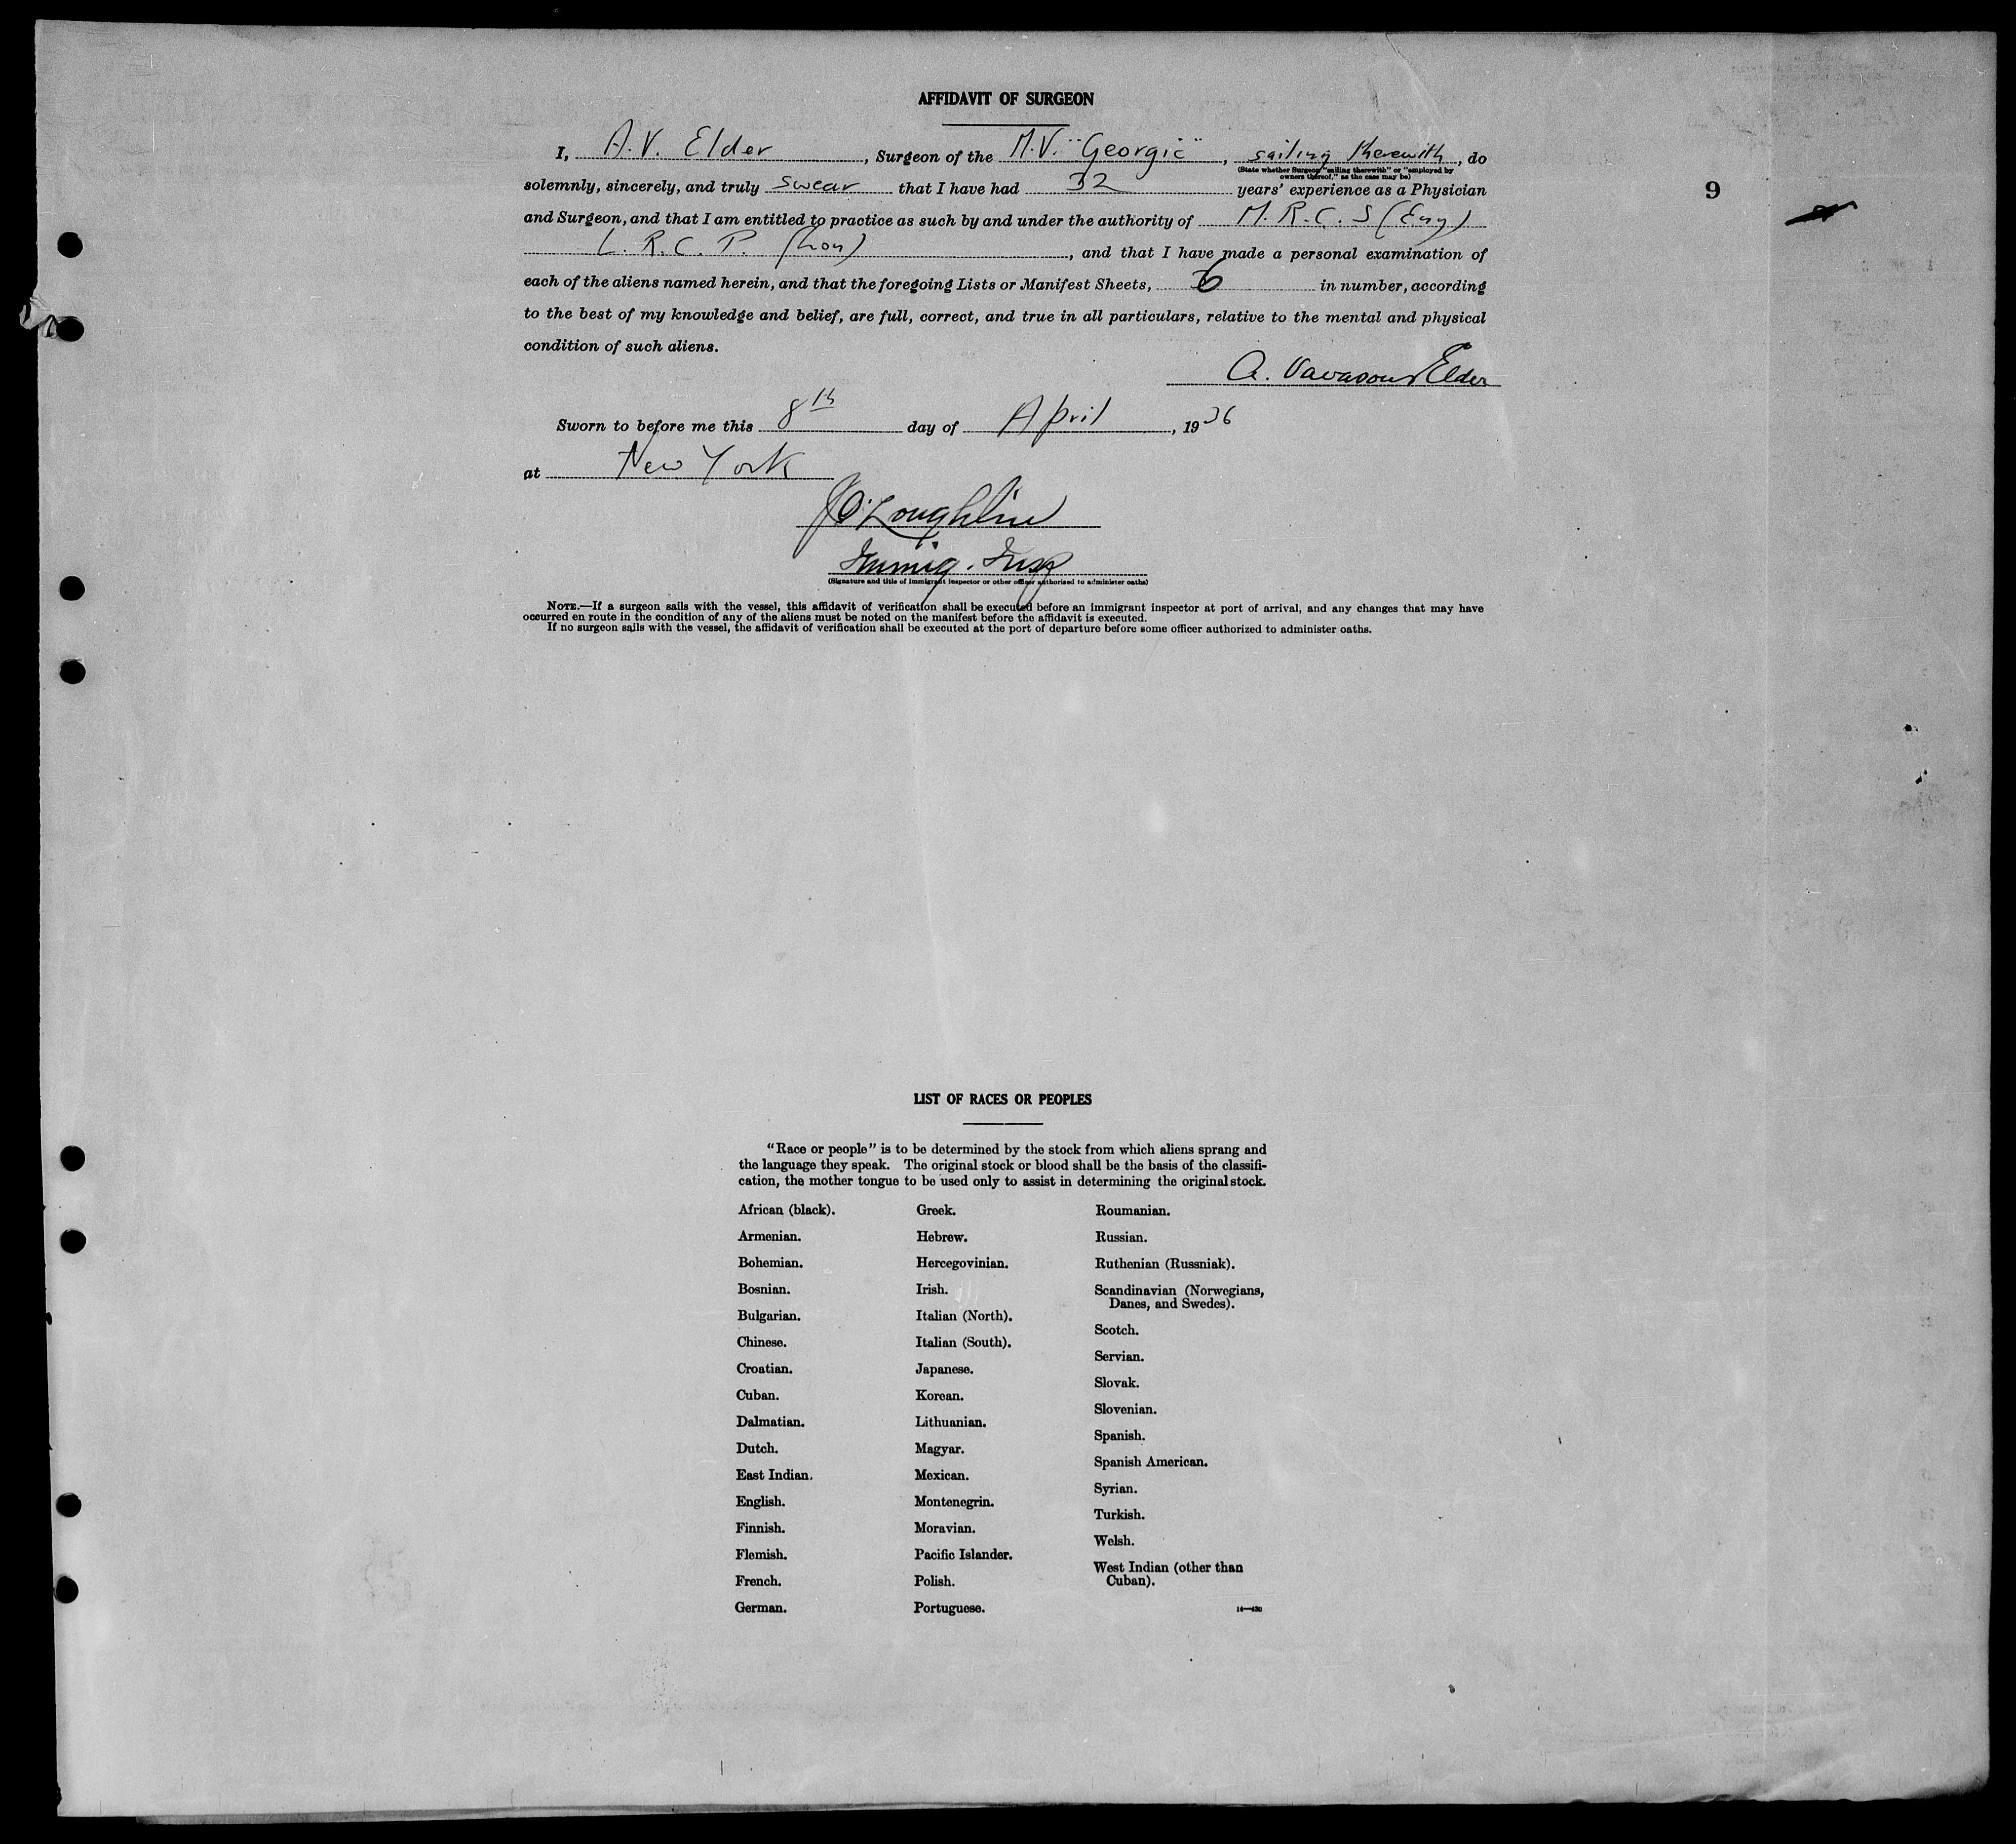 AFFIDAVIT OF SURGEON
I, A. V. Elder, Surgeon of the M.V. "Georgic", sailing therewith, do
(State whether Surgeon "sailing therewith" or "employed by
owners thereof," as the case may be)
solemnly, sincerely, and truly swear that I have had 32 years' experience as a Physician
9
and Surgeon, and that I am entitled to practice as such by and under the authority of M. R. C. S (Eng)
L. R. C. P. (Lon), and that I have made a personal examination of
each of the aliens named herein, and that the foregoing Lists or Manifest Sheets, 6 in number, according
to the best of my knowledge and belief, are full, correct, and true in all particulars, relative to the mental and physical
condition of such aliens.
A. Vavasour Elder
Sworn to before me this 8th day of April, 1936
at New York
J O'Loughlin
Immig. Insp
(Signature and title of immigrant inspector or other officer authorized to administer oaths)
NOTE.—If a surgeon sails with the vessel, this affidavit of verification shall be executed before an immigrant inspector at port of arrival, and any changes that may have
occurred en route in the condition of any of the aliens must be noted on the manifest before the affidavit is executed.
If no surgeon sails with the vessel, the affidavit of verification shall be executed at the port of departure before some officer authorized to administer oaths.
LIST OF RACES OR PEOPLES
"Race or people" is to be determined by the stock from which aliens sprang and
the language they speak. The original stock or blood shall be the basis of the classifi-
cation, the mother tongue to be used only to assist in determining the original stock.
African (black).
Armenian.
Bohemian.
Bosnian.
Bulgarian.
Chinese.
Croatian.
Cuban.
Dalmatian.
Dutch.
East Indian.
English.
Finnish.
Flemish.
French.
German.
Greek.
Hebrew.
Hercegovinian.
Irish.
Italian (North).
Italian (South).
Japanese.
Korean.
Lithuanian.
Magyar.
Mexican.
Montenegrin.
Moravian.
Pacific Islander.
Polish.
Portuguese.
Roumanian.
Russian.
Ruthenian (Russniak).
Scandinavian (Norwegians,
Danes, and Swedes).
Scotch.
Servian.
Slovak.
Slovenian.
Spanish.
Spanish American.
Syrian.
Turkish.
Welsh.
West Indian (other than
Cuban).